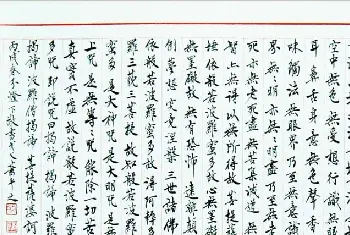 空中無色無受想行識無眼
耳鼻舌身意無色聲香
味觸法無眼界乃至無意
界無無明亦無無明盡乃至無老
死亦無老死盡無苦集滅道無
智亦無得以無所得故菩提薩
埵依般若波羅蜜多故心無罣礙
無罣礙故無有恐怖遠離顛
倒夢想究竟涅槃三世諸佛
依般若波羅蜜多故得阿耨多
羅三藐三菩提故知般若波羅
蜜多是大神咒是大明咒是無
上咒是無等等咒能除一切苦
真實不虛故說般若波羅蜜
多咒即說咒曰揭諦揭諦波羅
揭諦波羅僧揭諦菩提薩婆訶